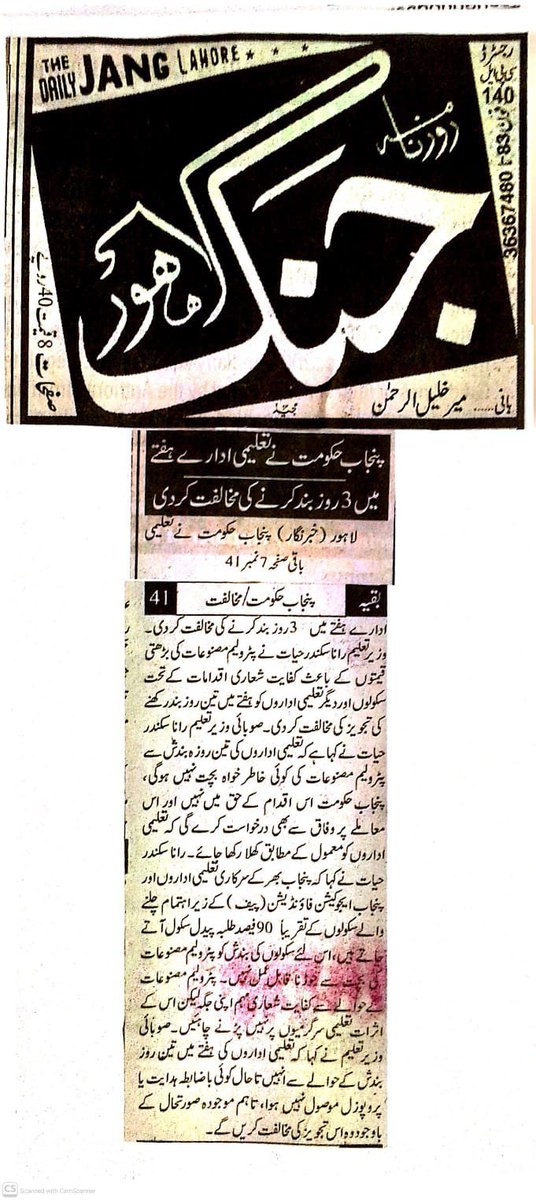 THE DAILY JANG LAHORE
روزنامہ
جنگ
لاہور
رجسٹرڈ
سی پی ایل
140
36367480-83
صفحات 8 قیمت 40 روپے
بانی...... میر خلیل الرحمٰن
پنجاب حکومت نے تعلیمی ادارے ہفتے
میں 3 روز بند کرنے کی مخالفت کردی
لاہور (خبرنگار) پنجاب حکومت نے تعلیمی
باقی صفحہ 7 نمبر 41
بقیہ پنجاب حکومت/مخالفت 41
ادارے ہفتے میں 3 روز بند کرنے کی مخالفت کردی۔
وزیر تعلیم رانا سکندر حیات نے پٹرولیم مصنوعات کی بڑھتی
قیمتوں کے باعث کفایت شعاری اقدامات کے تحت
سکولوں اور دیگر تعلیمی اداروں کو ہفتے میں تین روز بند رکھنے
کی تجویز کی مخالفت کردی۔ صوبائی وزیر تعلیم رانا سکندر
حیات نے کہا ہے کہ تعلیمی اداروں کی تین روزہ بندش سے
پٹرولیم مصنوعات کی کوئی خاطر خواہ بچت نہیں ہوگی،
پنجاب حکومت اس اقدام کے حق میں نہیں اور اس
معاملے پر وفاق سے بھی درخواست کرے گی کہ تعلیمی
اداروں کو معمول کے مطابق کھلا رکھا جائے۔ رانا سکندر
حیات نے کہا کہ پنجاب بھر کے سرکاری تعلیمی اداروں اور
پنجاب ایجوکیشن فاؤنڈیشن (پیف) کے زیر اہتمام چلنے
والے سکولوں کے تقریباً 90 فیصد طلبہ پیدل سکول آتے
جاتے ہیں، اس لئے سکولوں کی بندش کو پٹرولیم مصنوعات
کی بچت سے جوڑنا قابل عمل نہیں۔ پٹرولیم مصنوعات
کے حوالے سے کفایت شعاری مہم اپنی جگہ لیکن اس کے
اثرات تعلیمی سرگرمیوں پر نہیں پڑنے چاہئیں۔ صوبائی
وزیر تعلیم نے کہا کہ تعلیمی اداروں کی ہفتے میں تین روز
بندش کے حوالے سے انہیں تاحال کوئی باضابطہ ہدایت یا
پروپوزل موصول نہیں ہوا، تاہم موجودہ صورتحال کے
باوجود وہ اس تجویز کی مخالفت کریں گے۔
CS Scanned with CamScanner